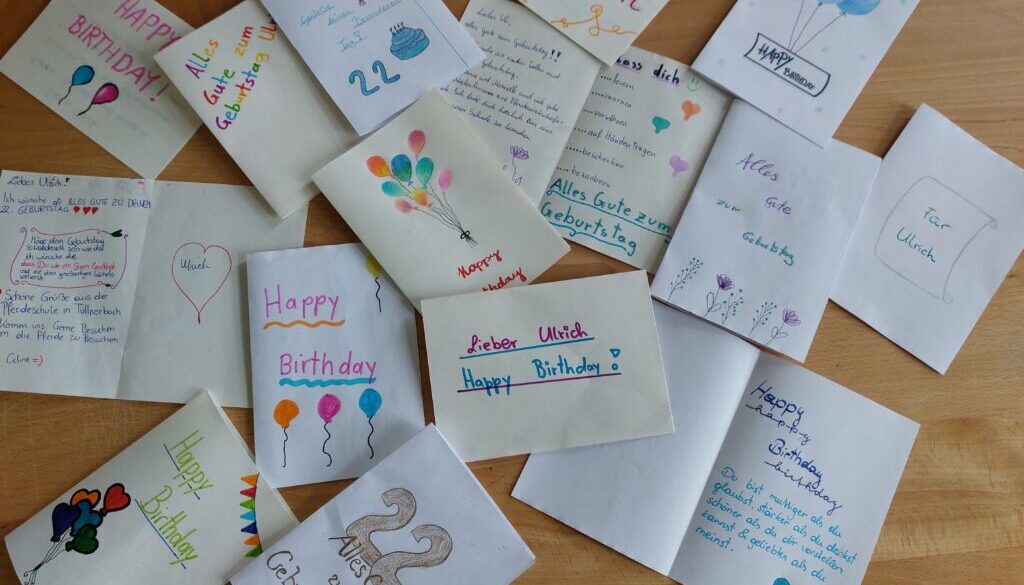 HAPPY
BIRTHDAY!
Alles
Gute zum
Geburtstag Ul
22
Lieber Uli,
Geburtstag!!
lass dich
....feiern
....umarmen
....verwöhnen
....auf Händen tragen
....beschenken
....bezaubern
Alles Gute zum
Geburtstag
HAPPY
BIRTHDAY
Alles
Gute
zum
Geburtstag
Für
Ulrich
Lieber Ulrich!
Ich wünsche dir ALLES GUTE ZU DEINEM
22. GEBURTSTAG
Möge dein Geburtstag
so wundervoll sein wie du!
Ich wünsche dir,
dass Du wie ein Stern leuchtest
und mit dem großartigen Lächeln
Schöne Grüße aus der
Pferdeschule in Tullnerbach
Komm uns Gerne Besuchen
um die Pferde zu Besuchen
Celine =)
Ulrich
Happy
Birthday
Happy
Birthday
Lieber Ulrich
Happy Birthday!
Happy
Birthday
22
Alles
Happy
happy
Birthday
birthday
Du bist mutiger als du
glaubst, stärker als du denkst
schöner als du dir vorstellen
kannst & geliebter als du
meinst.